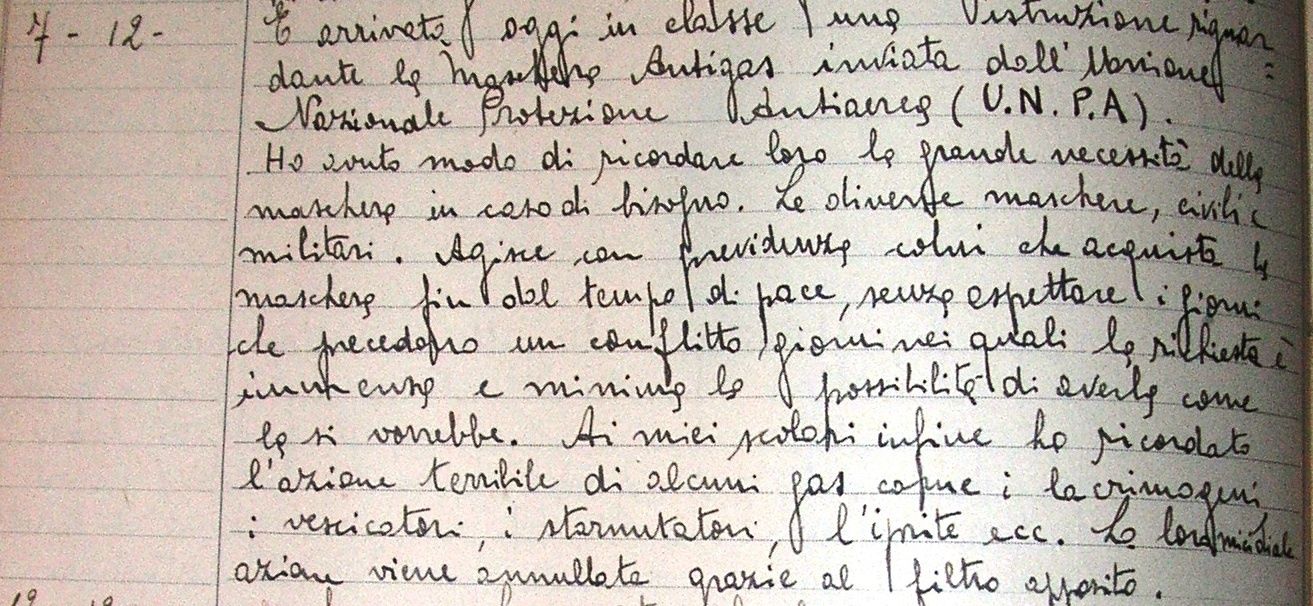 7 - 12 -
È arrivata oggi in classe una Istruzione riguar
dante la Maschera Antigas inviata dall'Unione
Nazionale Protezione Antiaerea (U.N.P.A).
Ho avuto modo di ricordare loro la grande necessità della
maschera in caso di bisogno. Le diverse maschere, civili e
militari. Agisce con previdenza colui che acquista la
maschera fin dal tempo di pace, senza aspettare i giorni
che precedono un conflitto giorni nei quali la richiesta è
immensa e minima la possibilità di averla come
la si vorrebbe. Ai miei scolari infine ho ricordato
l'azione terribile di alcuni gas come i lacrimogeni
i vescicatori, i starnutatori, l'iprite ecc. La loro micidiale
azione viene annullata grazie al filtro apposito.